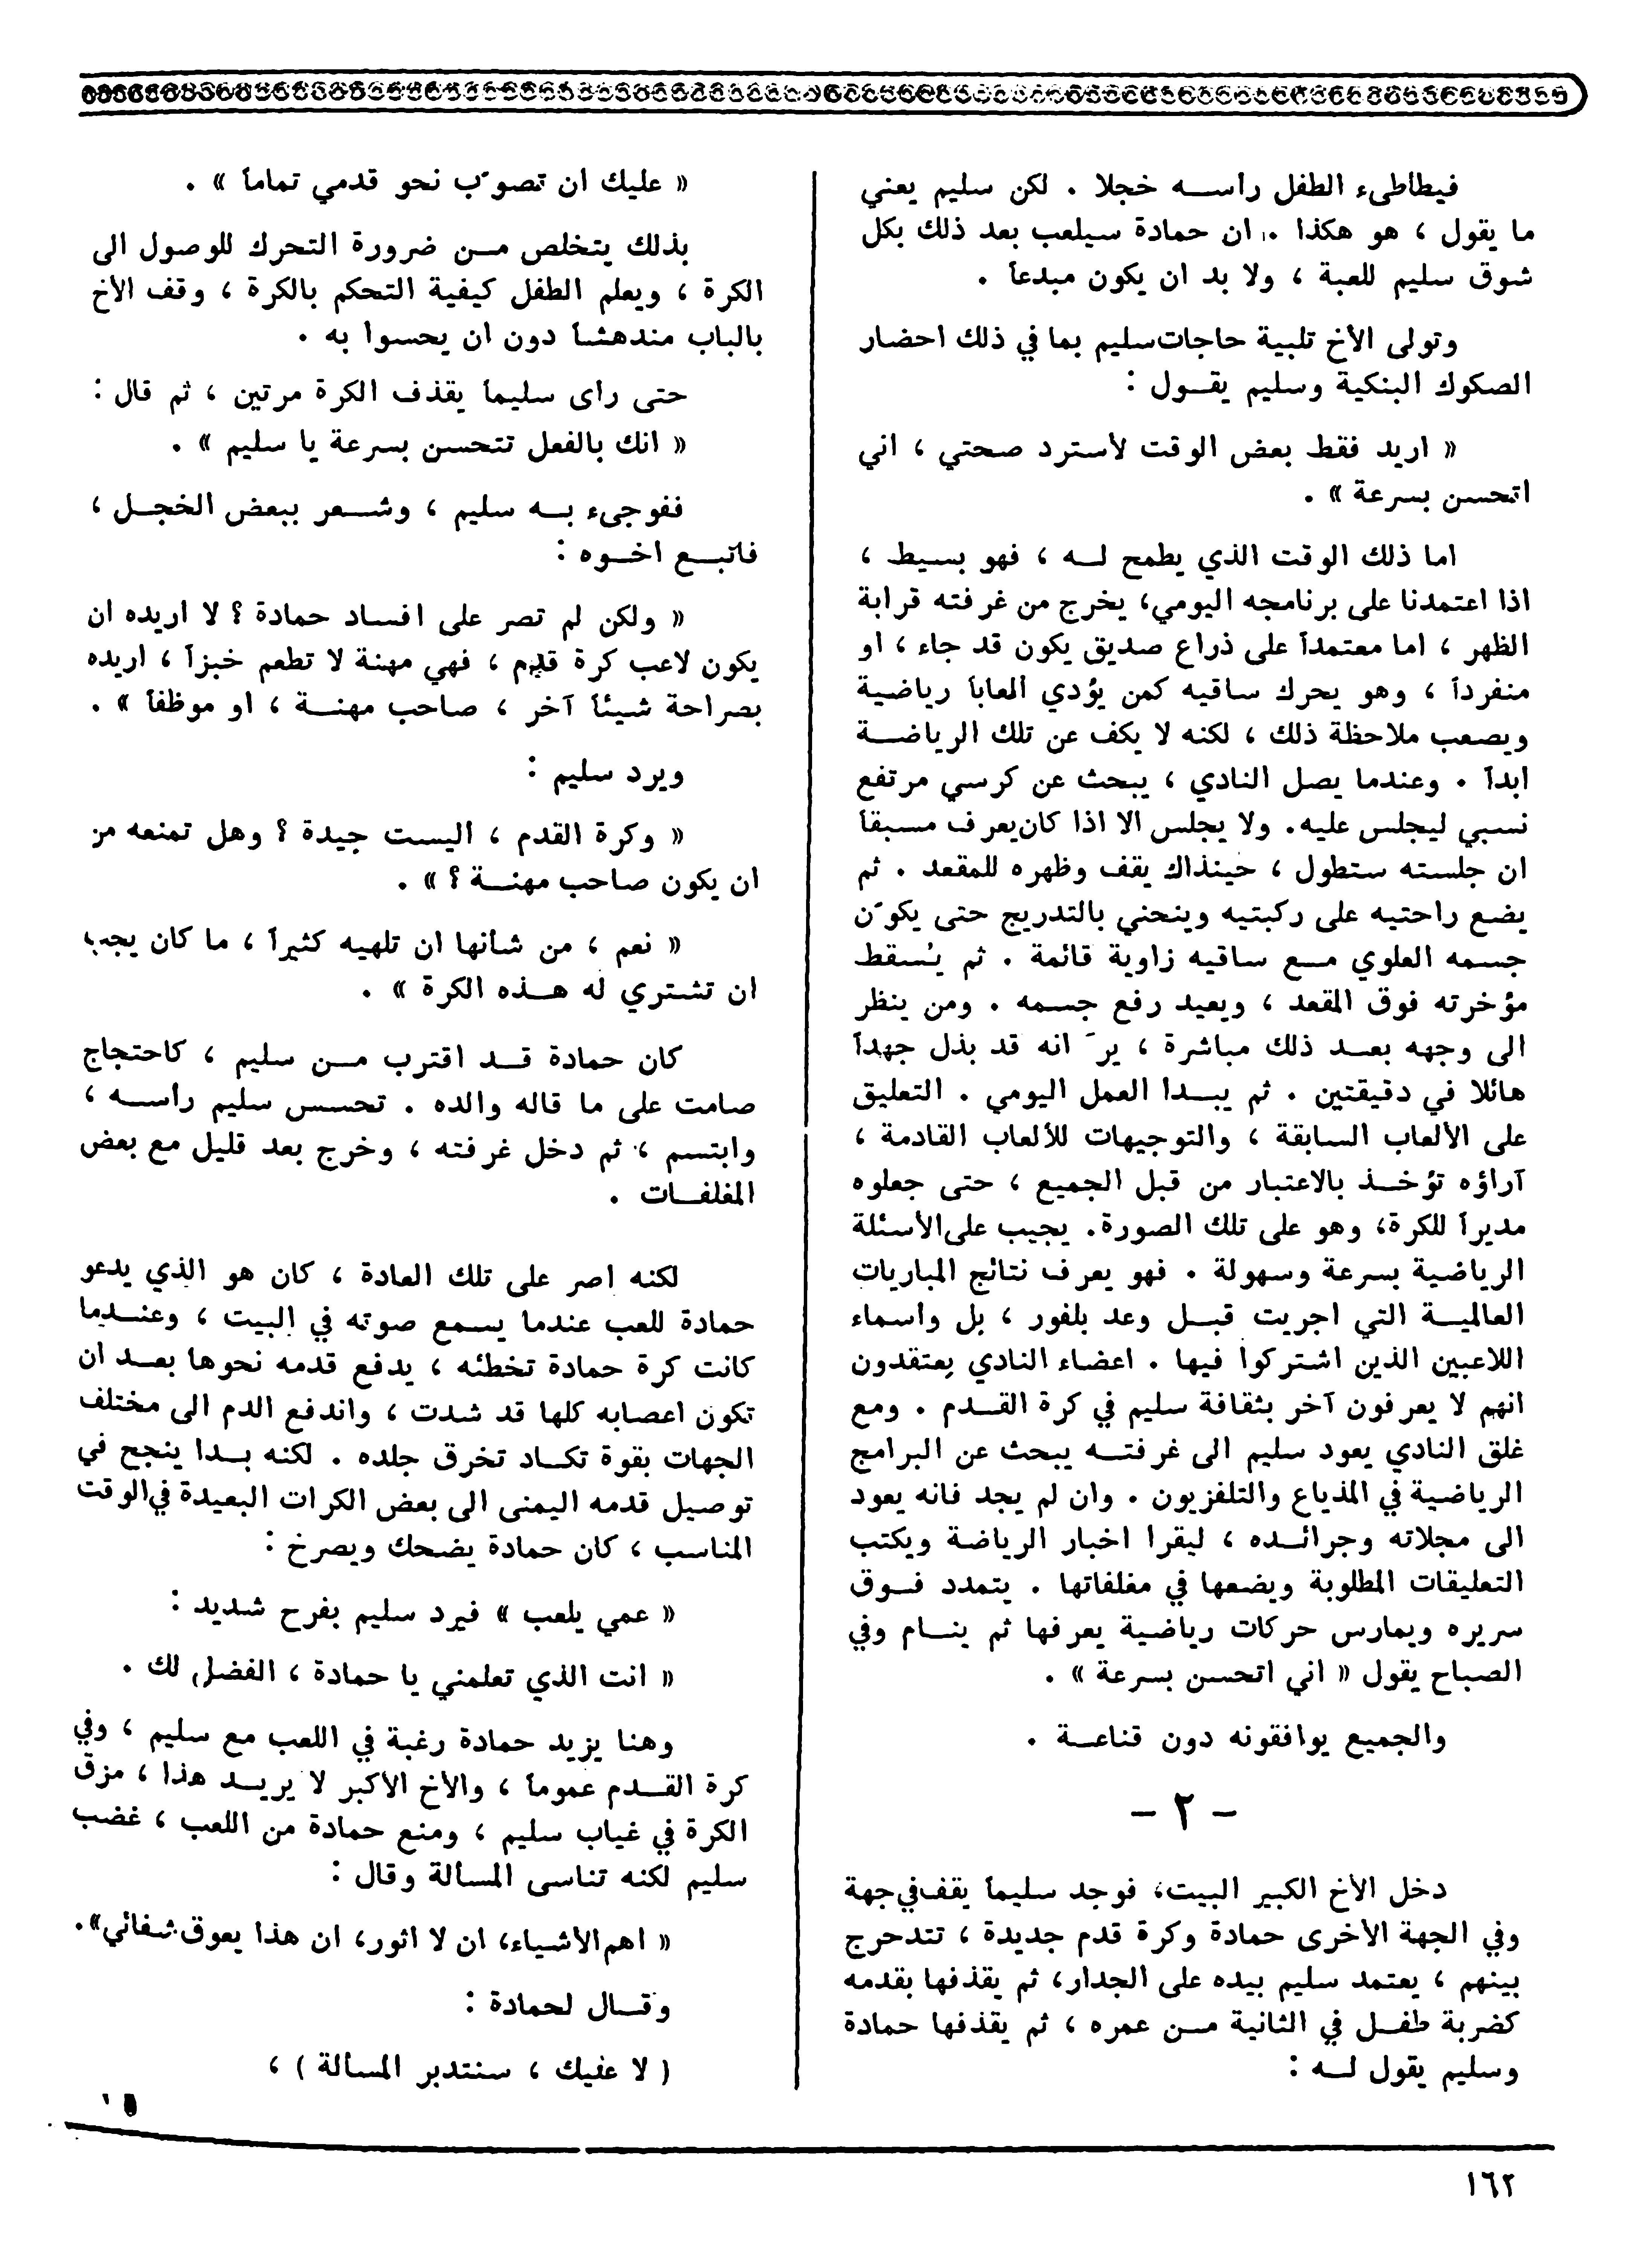 فيطاطىء الطفل رأسه خجلا . لكن سليم يعني
ما يقول ، هو هكذا . ان حمادة سيلعب بعد ذلك بكل
شوق سليم للعبة ، ولا بد ان يكون مبدعاً .
وتولى الأخ تلبية حاجات سليم بما في ذلك احضار
الصكوك البنكية وسليم يقول :
« اريد فقط بعض الوقت لأسترد صحتي ، اني
اتحسن بسرعة » .
اما ذلك الوقت الذي يطمح له ، فهو بسيط ،
اذا اعتمدنا على برنامجه اليومي، يخرج من غرفته قرابة
الظهر ، اما معتمداً على ذراع صديق يكون قد جاء ، او
منفرداً ، وهو يحرك ساقيه كمن يؤدي ألعاباً رياضية
ويصعب ملاحظة ذلك ، لكنه لا يكف عن تلك الرياضة
ابداً . وعندما يصل النادي ، يبحث عن كرسي مرتفع
نسبي ليجلس عليه. ولا يجلس الا اذا كان يعرف مسبقاً
ان جلسته ستطول ، حينذاك يقف وظهره للمقعد . ثم
يضع راحتيه على ركبتيه وينحني بالتدريج حتى يكوّن
جسمه العلوي مع ساقيه زاوية قائمة . ثم يُسقط
مؤخرته فوق المقعد ، ويعيد رفع جسمه . ومن ينظر
الى وجهه بعد ذلك مباشرة ، يرَ انه قد بذل جهداً
هائلا في دقيقتين . ثم يبدا العمل اليومي . التعليق
على الألعاب السابقة ، والتوجيهات للألعاب القادمة ،
آراؤه تؤخذ بالاعتبار من قبل الجميع ، حتى جعلوه
مديراً للكرة، وهو على تلك الصورة. يجيب على الأسئلة
الرياضية بسرعة وسهولة . فهو يعرف نتائج المباريات
العالمية التي اجريت قبل وعد بلفور ، بل واسماء
اللاعبين الذين اشتركوا فيها . اعضاء النادي يعتقدون
انهم لا يعرفون آخر بثقافة سليم في كرة القدم . ومع
غلق النادي يعود سليم الى غرفته يبحث عن البرامج
الرياضية في المذياع والتلفزيون . وان لم يجد فانه يعود
الى مجلاته وجرائده ، ليقرا اخبار الرياضة ويكتب
التعليقات المطلوبة ويضعها في مغلفاتها . يتمدد فوق
سريره ويمارس حركات رياضية يعرفها ثم ينام وفي
الصباح يقول « اني اتحسن بسرعة » .
والجميع يوافقونه دون قناعة .
- ٢ -
دخل الأخ الكبير البيت، فوجد سليماً يقف في جهة
وفي الجهة الأخرى حمادة وكرة قدم جديدة ، تتدحرج
بينهم ، يعتمد سليم بيده على الجدار، ثم يقذفها بقدمه
كضربة طفل في الثانية من عمره ، ثم يقذفها حمادة
وسليم يقول له :
« عليك ان تصوّب نحو قدمي تماماً » .
بذلك يتخلص من ضرورة التحرك للوصول الى
الكرة ، ويعلم الطفل كيفية التحكم بالكرة ، وقف الأخ
بالباب مندهشاً دون ان يحسوا به .
حتى راى سليماً يقذف الكرة مرتين ، ثم قال :
« انك بالفعل تتحسن بسرعة يا سليم » .
ففوجىء به سليم ، وشعر ببعض الخجل ،
فاتبع اخوه :
« ولكن لم تصر على افساد حمادة ؟ لا اريده ان
يكون لاعب كرة قدم ، فهي مهنة لا تطعم خبزاً ، اريده
بصراحة شيئاً آخر ، صاحب مهنة ، او موظفاً » .
ويرد سليم :
« وكرة القدم ، أليست جيدة ؟ وهل تمنعه من
ان يكون صاحب مهنة ؟ » .
« نعم ، من شأنها ان تلهيه كثيراً ، ما كان يجب
ان تشتري له هذه الكرة » .
كان حمادة قد اقترب من سليم ، كاحتجاج
صامت على ما قاله والده . تحسس سليم رأسه ،
وابتسم ، ثم دخل غرفته ، وخرج بعد قليل مع بعض
المغلفات .
لكنه اصر على تلك العادة ، كان هو الذي يدعو
حمادة للعب عندما يسمع صوته في البيت ، وعندما
كانت كرة حمادة تخطئه ، يدفع قدمه نحوها بعد ان
تكون اعصابه كلها قد شدت ، واندفع الدم الى مختلف
الجهات بقوة تكاد تخرق جلده . لكنه بدا ينجح في
توصيل قدمه اليمنى الى بعض الكرات البعيدة في الوقت
المناسب ، كان حمادة يضحك ويصرخ :
« عمي يلعب » فيرد سليم بفرح شديد :
« انت الذي تعلمني يا حمادة ، الفضل لك .
وهنا يزيد حمادة رغبة في اللعب مع سليم ، وفي
كرة القدم عموماً ، والأخ الأكبر لا يريد هذا ، مزق
الكرة في غياب سليم ، ومنع حمادة من اللعب ، غضب
سليم لكنه تناسى المسألة وقال :
« اهم الأشياء، ان لا اثور، ان هذا يعوق شفائي» .
وقال لحمادة :
( لا عليك ، سنتدبر المسألة ) ،
١٦٢